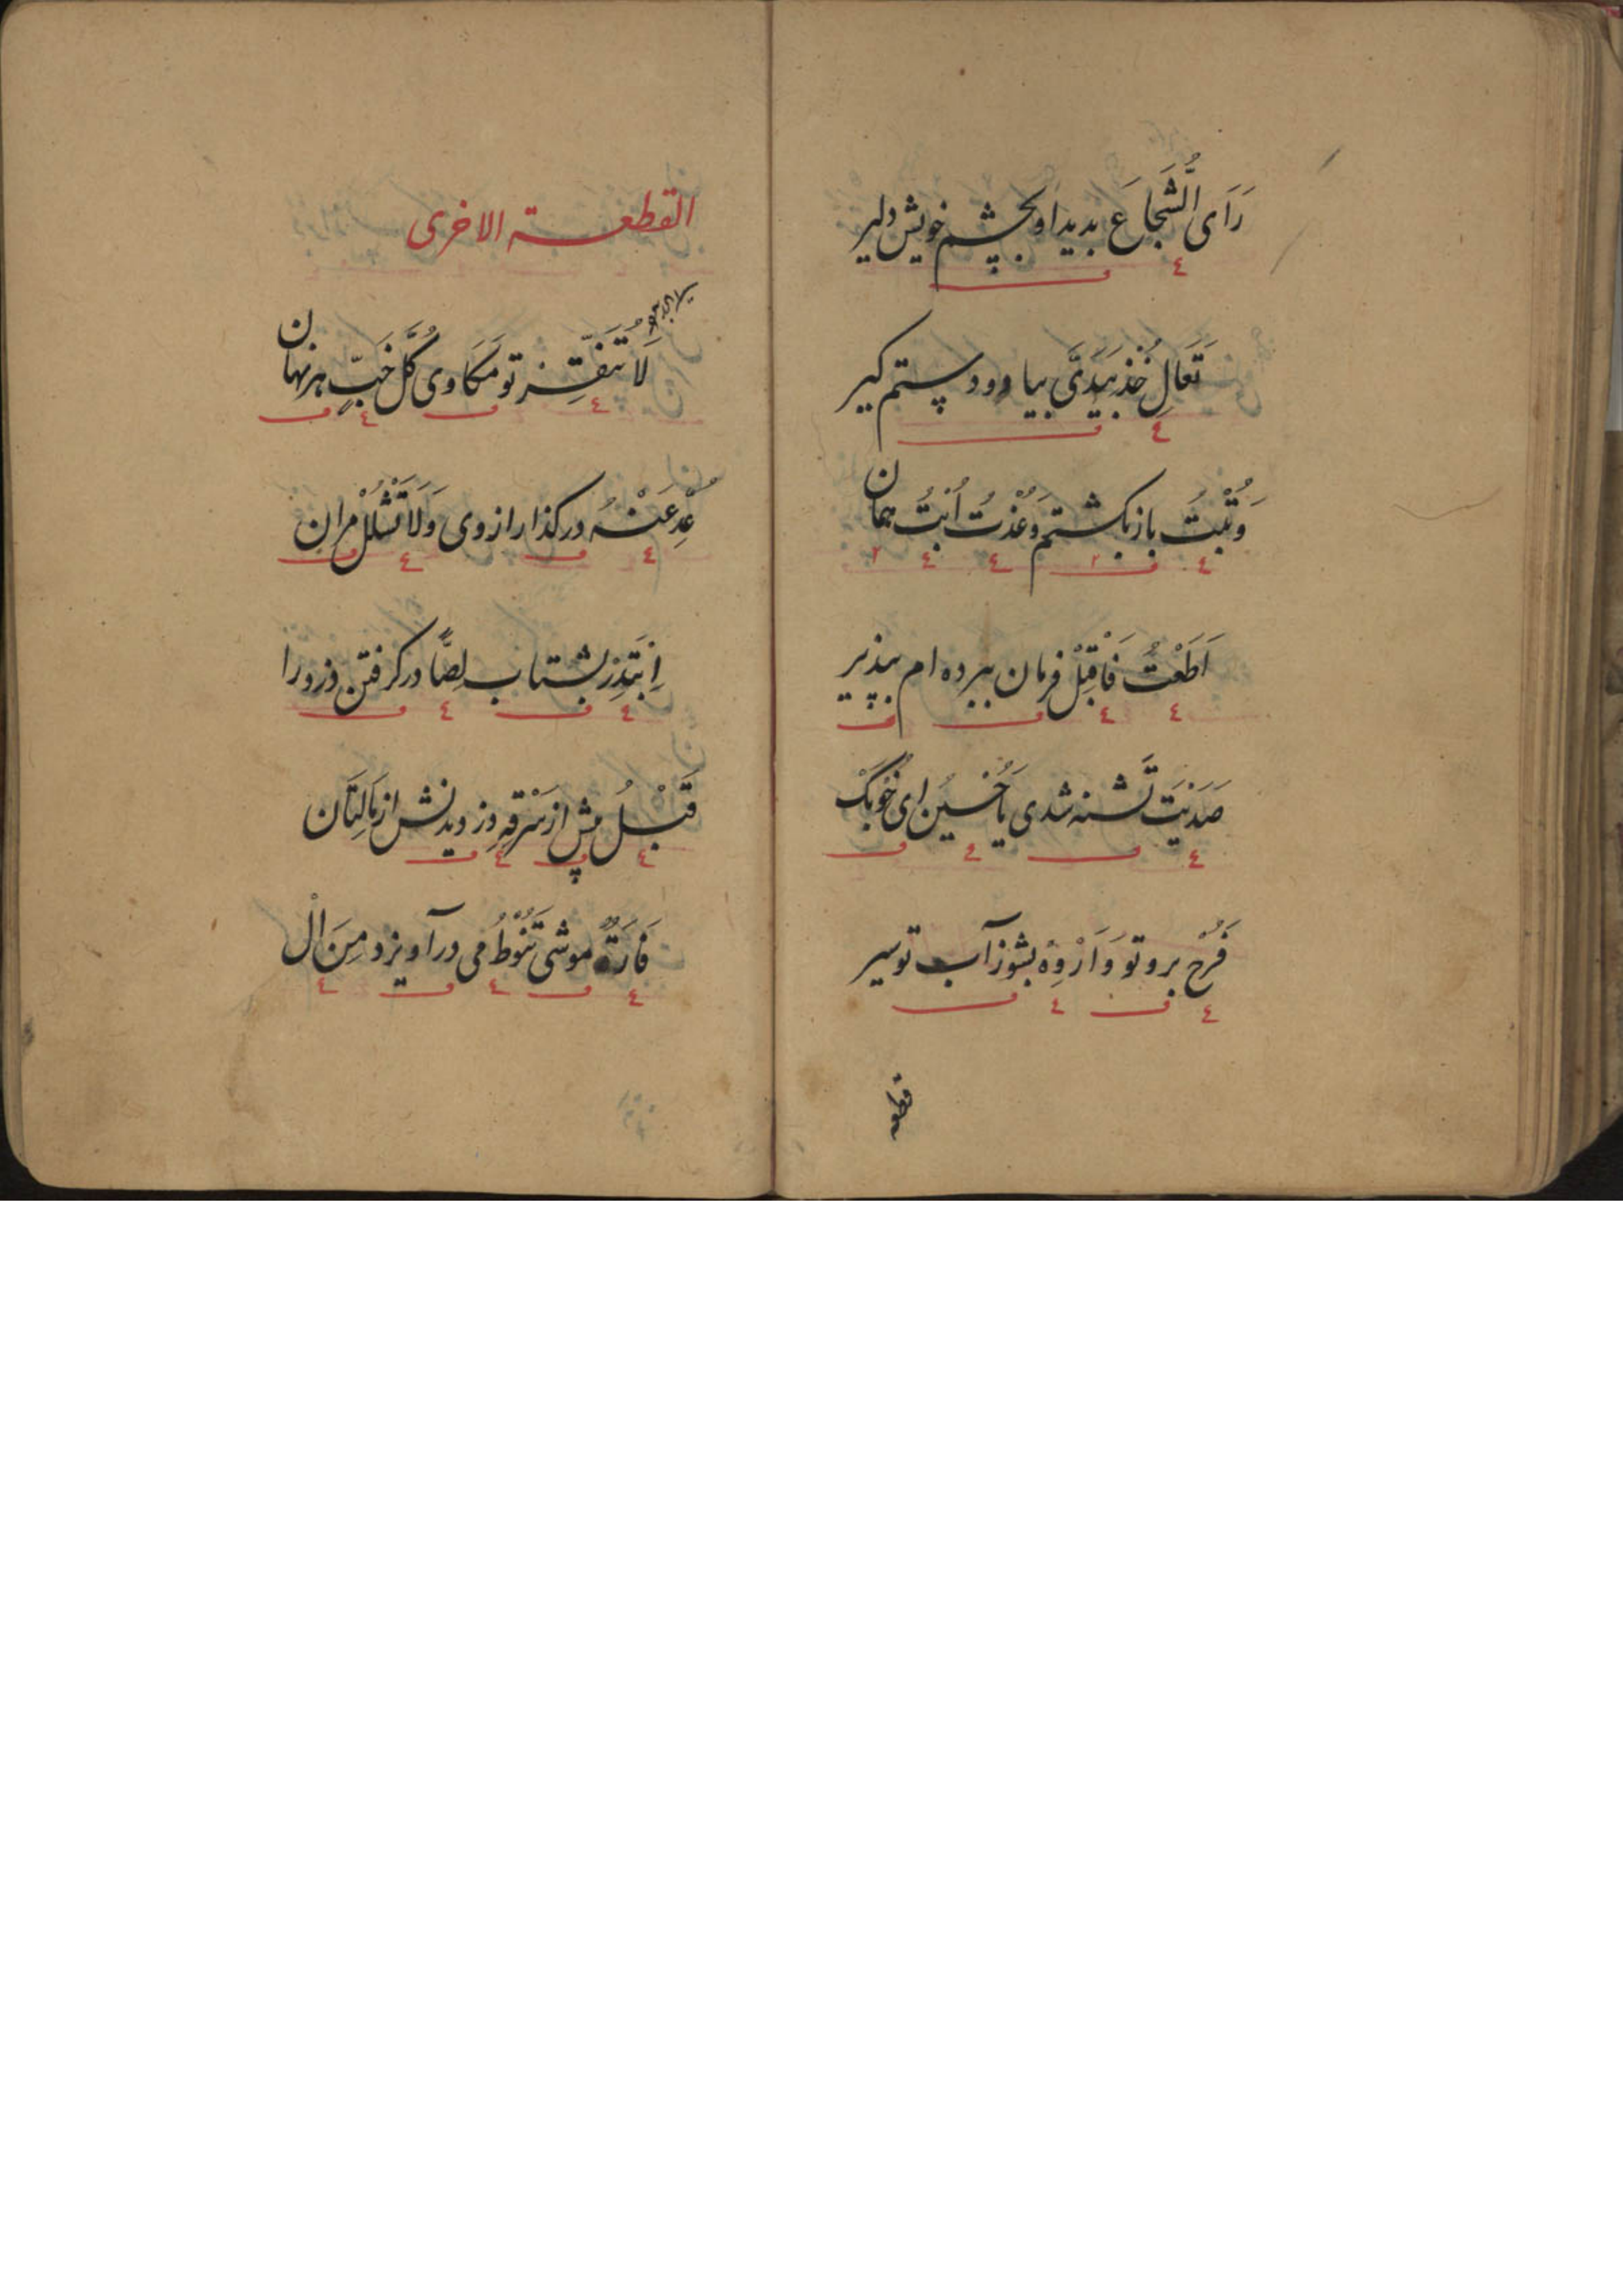 رَاَی الشُّجَاعَ بدید او بچشم خویش دلیر
٤
تَعَالِ خُذْ بِیَدَیَّ بیا و دو دستم کیر
٤
وَتُبْتُ باز بکشتم وَعُدْتُ اُبْتُ همان
٤ ٢ ٤ ٤ ٢
اَطَعْتُ فَاقْبِلْ فرمان ببرده ام بپذیر
٤ ٤
صَدَیْتَ تشنه شدی یَا حُسَیْنُ ای خوبک
٤ ٤
فَرُحْ برو تو وَارْوِهْ بشو ز آب تو سیر
٤ ٤
قطعه
القطعـة الاخری
لَا تُنَقِّرْ تو مکاوی کُلَّ خَبٍّ هر نهان
٤ ٤
عَدِّ عَنْهُ در کذار از وی وَلَا تَشْلُلْ مران
٤ ٤
اِبْتَدِرْ بشتاب لِصًّا در کرفتن دزد را
٤ ٤
قَبْلُ پیش از سَرْقِهِ دزدیدنش از مالتان
٤ ٤
فَارَةٌ موشی تَنُوْطُ می در آویزد مِنَ الْ
٤ ٤ ٤